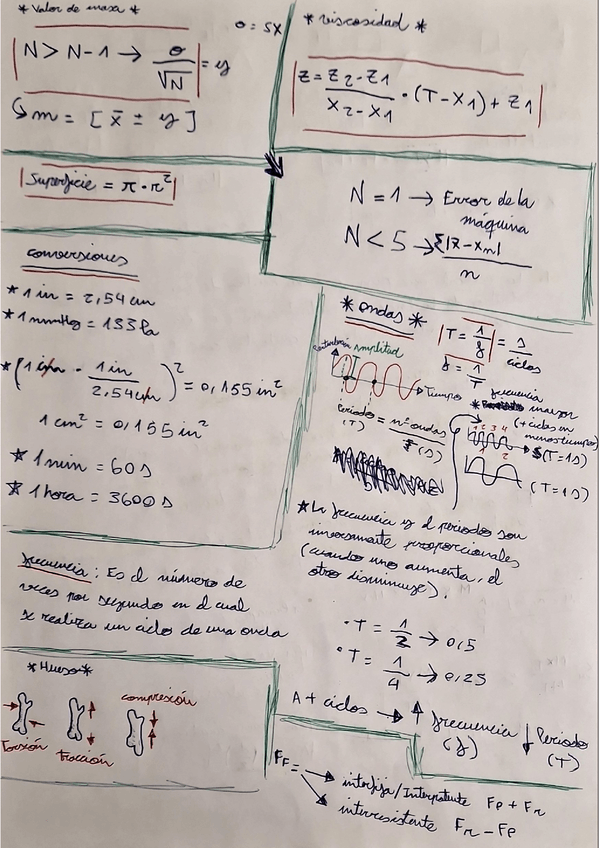 * Valor de masa *
σ = SX
N > N-1 → σ/√N = y
m = [x̄ ± y]
* viscosidad *
z = z2-z1/x2-x1 · (T-x1) + z1
Superficie = π·r²
N = 1 → Error de la
máquina
N < 5 → Σ|x̄-xn|/n
conversiones
* 1 in = 2,54 cm
* 1 mmHg = 133 Pa
* (1 cm · 1 in/2,54 cm)² = 0,155 in²
1 cm² = 0,155 in²
* 1 min = 60 s
* 1 hora = 3600 s
* ondas *
T = 1/f = s/ciclos
f = 1/T
amplitud
Tiempo
Periodo (T) = nº ondas/(s)
frecuencia
mayor
(+ ciclos en
menos tiempo)
1 2 3 4
(T=1s)
1 2
(T=1s)
* La frecuencia y el periodo son
inversamente proporcionales
(cuando uno aumenta, el
otro disminuye).
· T = 1/2 → 0,5
· T = 1/4 → 0,25
A + ciclos → ↑ frecuencia (f) ↓ Periodo (T)
frecuencia: Es el número de
veces por segundo en el cual
se realiza un ciclo de una onda
* Hueso *
compresión
Torsión
tracción
FF = → interfija/Interpotente Fp + Fr
→ interresistente Fr - Fp